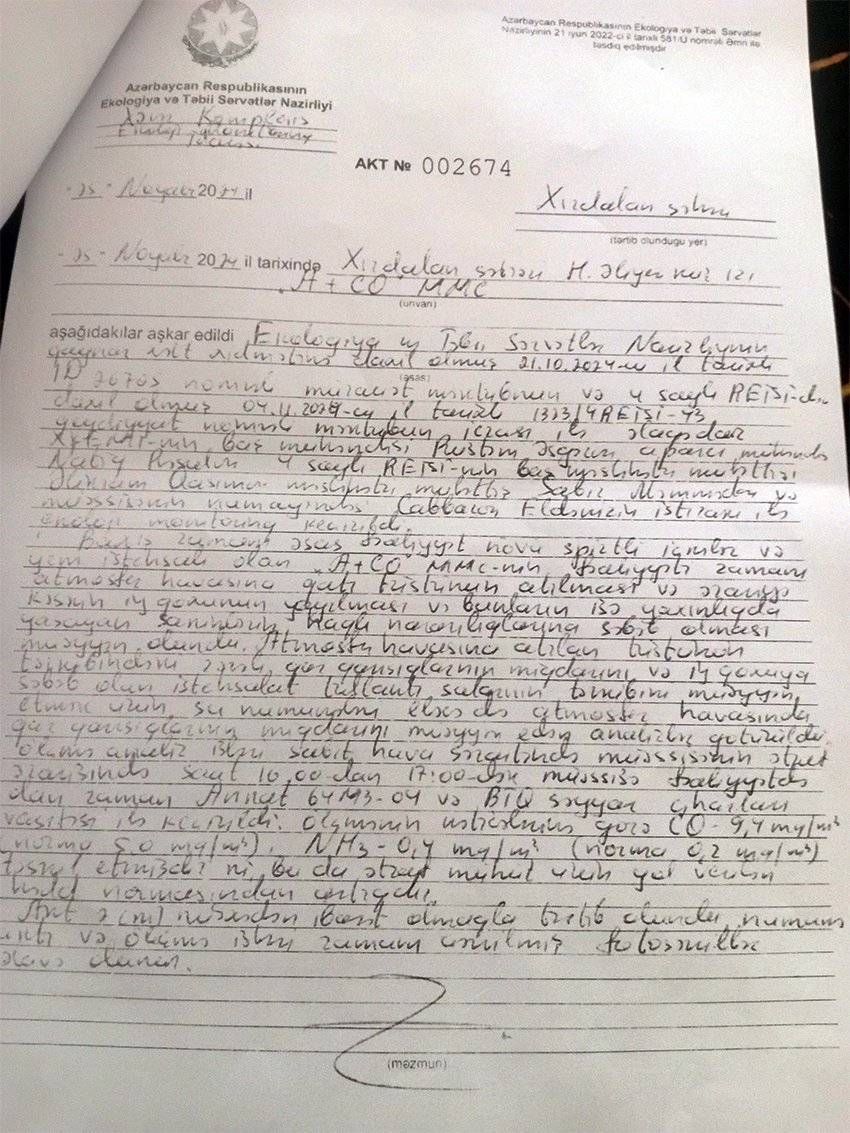 Azərbaycan Respublikasının Ekologiya və Təbii Sərvətlər
Nazirliyinin 21 iyun 2022-ci il tarixli 581/U nömrəli Əmri ilə
təsdiq edilmişdir
Azərbaycan Respublikasının
Ekologiya və Təbii Sərvətlər Nazirliyi
AKT № 002674
Noyabr 2024 il
Xırdalan şəhəri
(tərtib olunduğu yer)
Noyabr 2024 il tarixində Xırdalan şəhəri H. Əliyev
"A+CO" MMC
(ünvan)
aşağıdakılar aşkar edildi Ekologiya və Təbii Sərvətlər Nazirliyinin
qaynar xətt xidmətinə daxil olmuş 21.10.2024-cü il tarixli
(əsas)
ID nömrəli müraciət məktubunun və 4 saylı REİŞİ-də
daxil olmuş 04.11.2024-cü il tarixli 1333/4REİSİ-43
qeydiyyat nömrəli məktubun icrası ilə əlaqədar
baş mühəndisi Rüstəm aparıcı mühəndis
Natiq 4 saylı REİSİ-nin baş məsləhətçi
məsləhətçi Sabir və
müəssisənin nümayəndəsi Cabbarov Eldənizin iştirakı ilə
ekoloji monitorinq keçirildi.
Baxış zamanı əsas fəaliyyət növü spirtli içkilər və
yem istehsalı olan "A+CO" MMC-nin fəaliyyəti zamanı
atmosfer havasına qatı tüstünün atılması və
kəskin iy qoxunun yayılması və bunların isə yaxınlıqda
yaşayan sakinlərin haqlı narazılıqlarına səbəb olması
müəyyən olundu. Atmosfer havasına atılan tüstünün
tərkibindəki zərərli qaz qarışıqlarının miqdarını və iy qoxuya
səbəb olan istehsalat tullantı sularının tərkibini müəyyən
etmək üçün su nümunələri eləcə də atmosfer havasında
qaz qarışıqlarının miqdarını müəyyən edən analizlər götürüldü.
Ölçmə analiz işləri sabit hava şəraitində müəssisənin ətraf
ərazisində saat 16:00-dan 17:00-dək müəssisə fəaliyyətdə
olan zaman 64M3-04 və səyyar cihazları
vasitəsi ilə keçirildi. Ölçmənin nəticələrinə görə CO - 9,4 mg/m³
(norma 5.0 mg/m³), NH3 - 0,4 mg/m³ (norma 0,2 mg/m³)
təşkil etmişdir ki, bu da ətraf mühit üçün yol verilən
hədd normasından artıqdır.
Akt 2 (iki) nüsxədən ibarət olmaqla tərtib olundu, nümunə
aktı və ölçmə işləri zamanı çəkilmiş fotoşəkillər
əlavə olunur.
(məzmun)